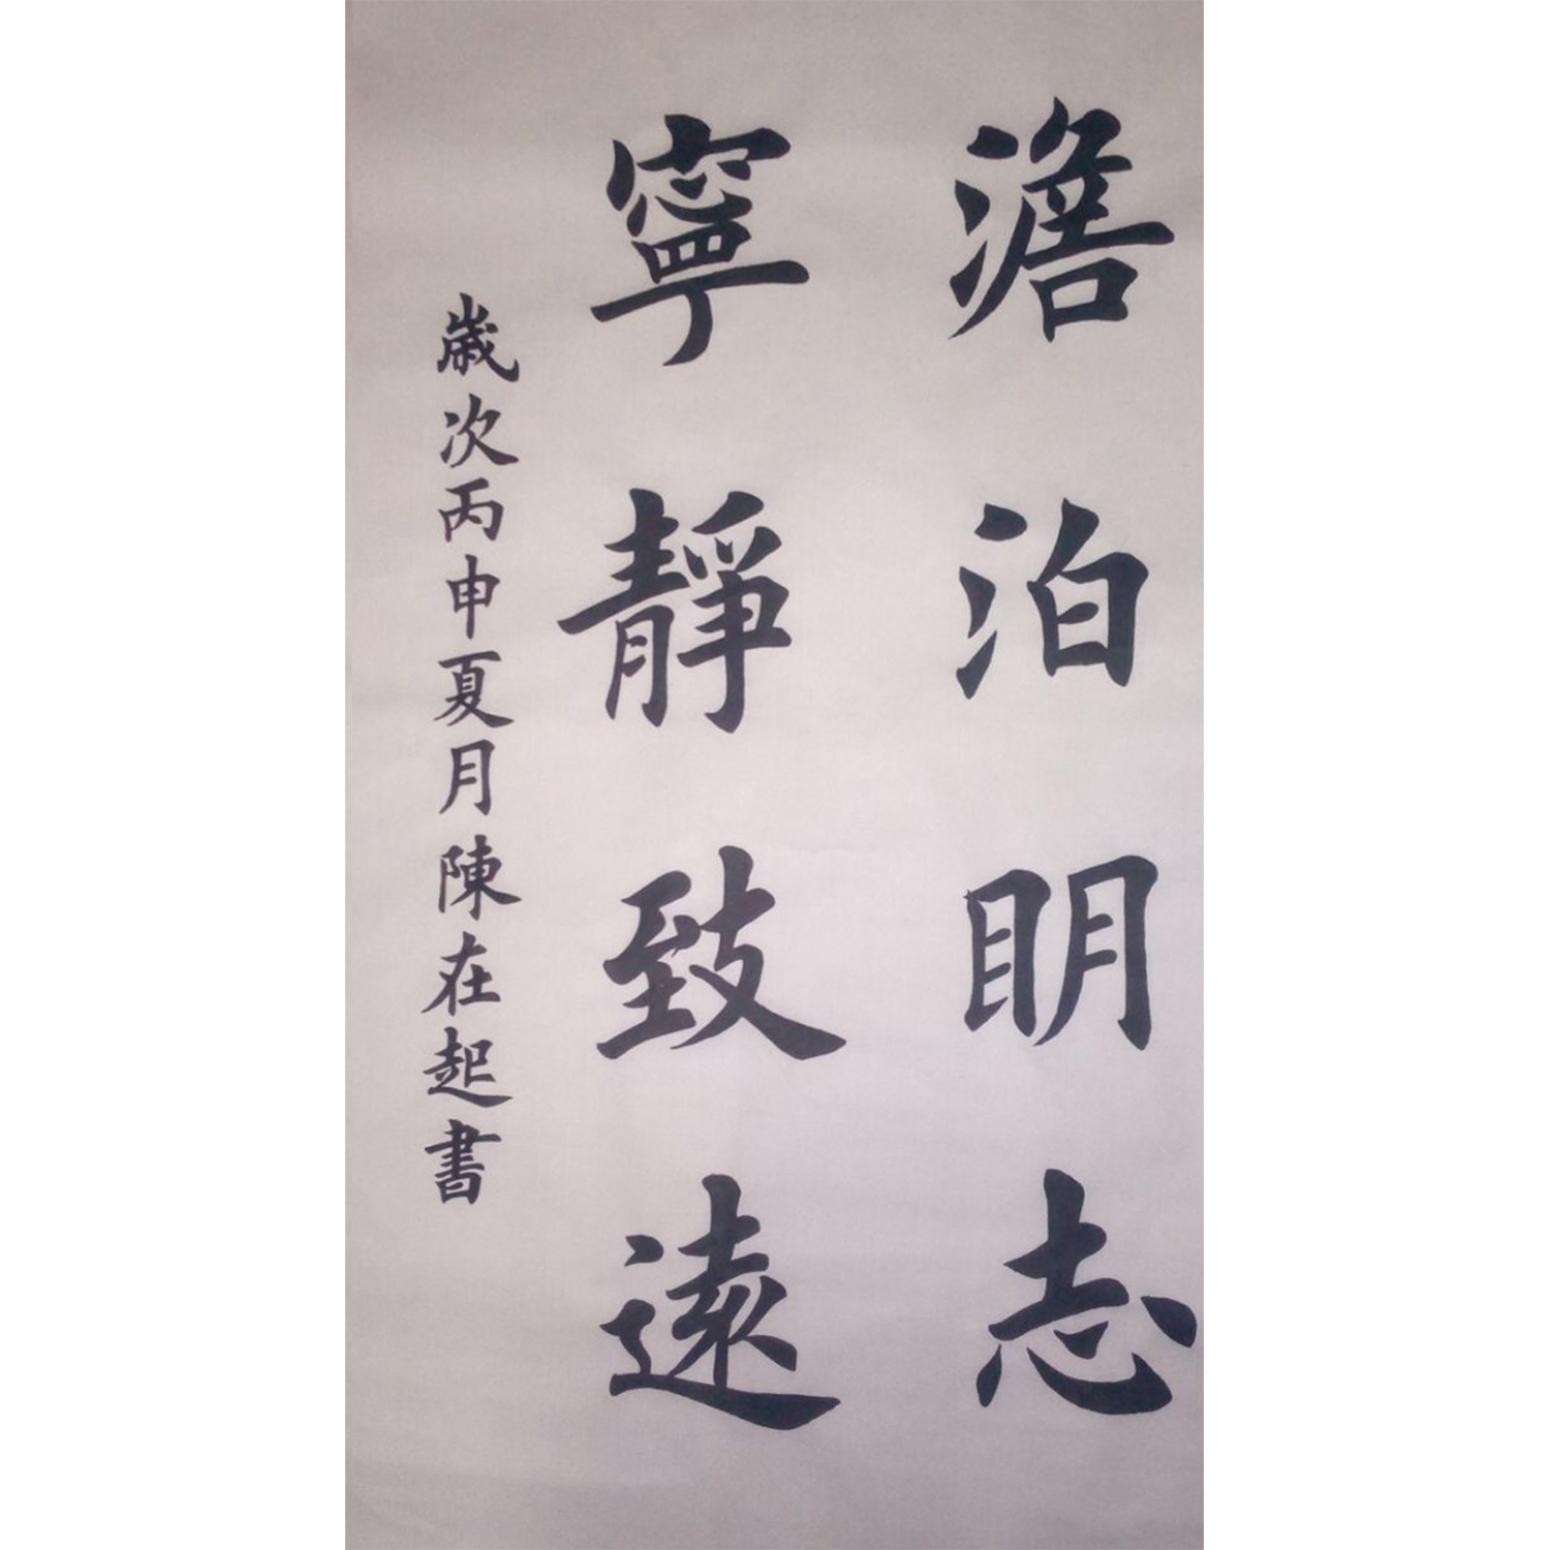 澹泊明志
寧靜致遠
歲次丙申夏月陳在起書